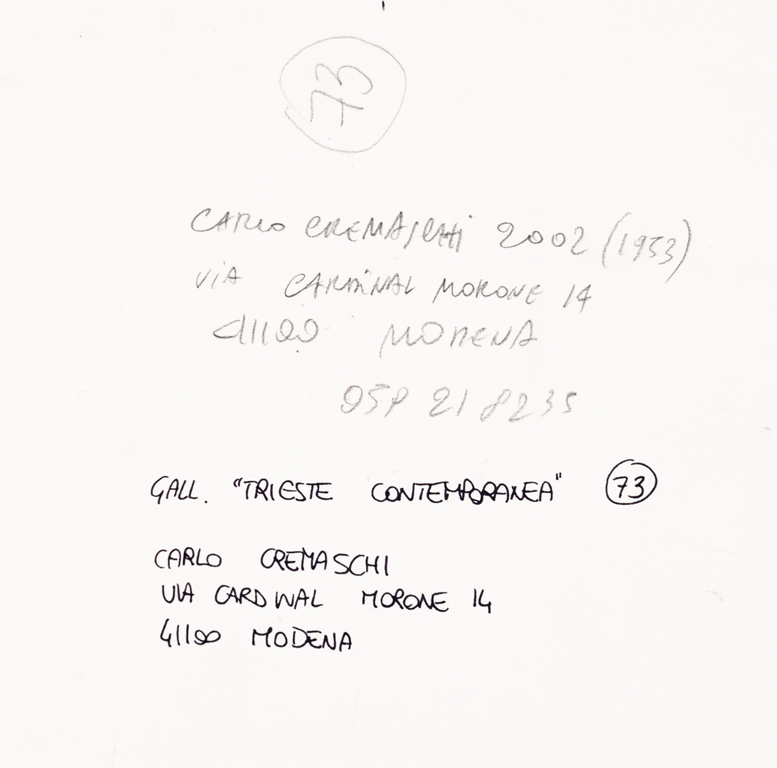 73
CARLO CREMASCHI 2002 (1953)
VIA CARDINAL MORONE 14
41100 MODENA
059 218235
GALL. "TRIESTE CONTEMPORANEA" 73
CARLO CREMASCHI
VIA CARDINAL MORONE 14
41100 MODENA